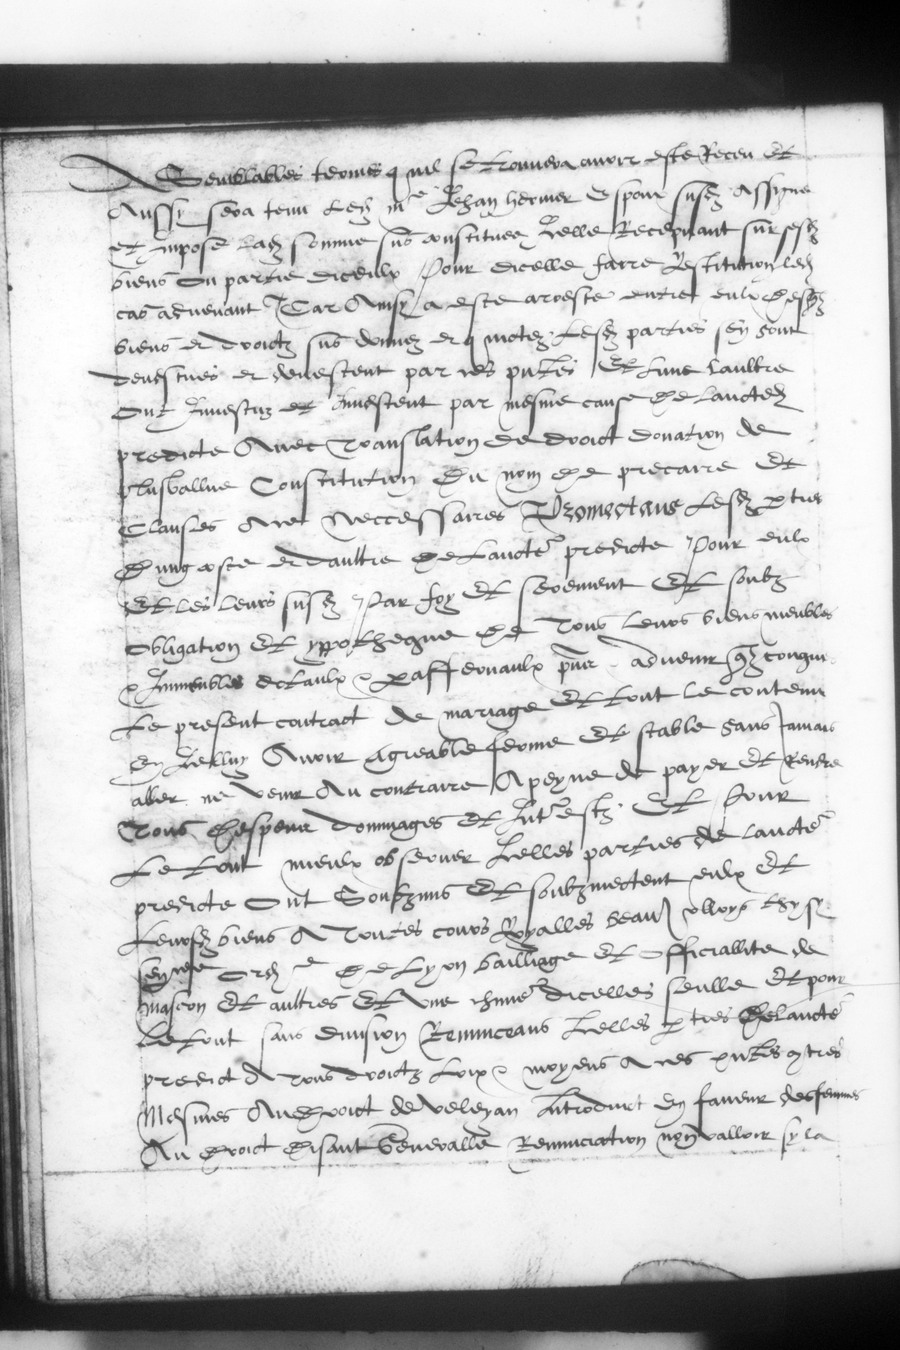 A Semblables termes q nil se trouvera avoir este Receu et
Aussy sera tenu led mre Jehan hermer et pour susd Assigne
et Impose lad somme sus constituee Icelle Recepvant sur sesd
biens ou partie diceulx Pour dicelle faire Restitution led
cas advenant Car Ainsy a este areste entre eulx Desd
biens et droictz sus donnez et q mictez lesd parties sen sont
devestues et devestent par ces pntes Et lune laultre
Ont Investuz et Investent par mesme cause De laucted
predicte Avec Translation de droict donation de
plusvallue Constitution Du nom De precaire Et
Clauses Ace Neccessaires Promectans lesd pties
Dung coste et daultre De laucte predicte Pour eulx
Et les leurs susd Par foy Et serement Et soubz
Obligation Et ypotheque De Tous leurs biens meubles
Immeubles
le present contract de mariage Et tout le contenu
En Icelluy Avoir Agreable ferme Et stable sans Jamais
aller ne venir Au contraire A peyne de payer Et Rendre
Tous Despens dommages Et Intestz Et Pour
Le tout mieulx observer Icelles parties de laucte
predicte Ont Soubzmis Et soubzmectent eulx Et
leursd biens A Toutes cours Royalles
De Lyon bailliage Et Officiallite de
Mascon Et aultres Et Une dicelles seulle Et pour
Le tout sans division Renunceans Icelles pties De laucte
predict A tous droictz loix moyens A ces pntes
Mesmes Au Droict de veleyan Introduict En faveur des femmes
Au Droict Disant Generalle Renunciation non valloir sy la